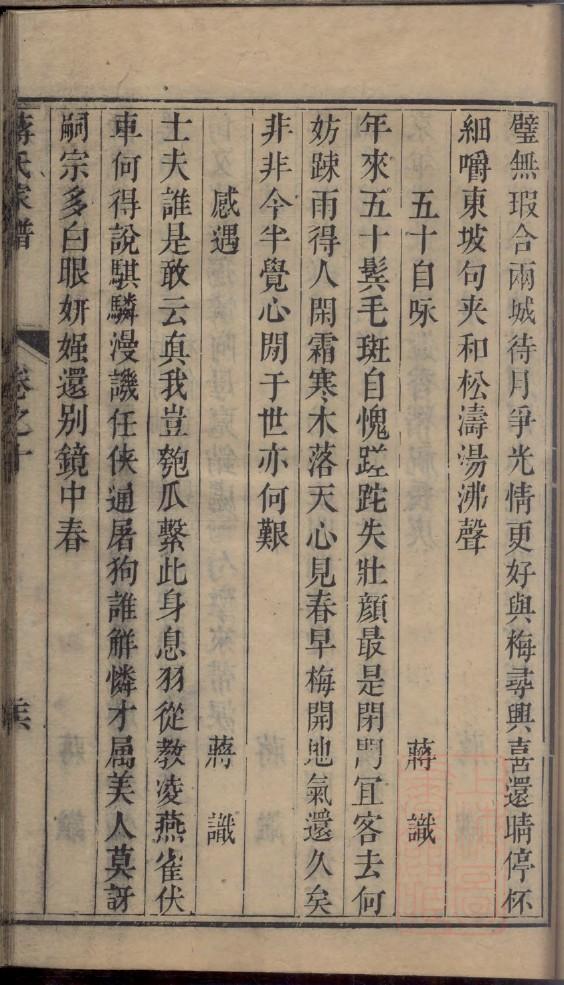 璧無瑕合兩城待月爭光情更好與梅尋興喜還晴停杯
細嚼東坡句夾和松濤湯沸聲
五十自咏　蔣　識
年來五十鬂毛斑自愧蹉跎失壯顏最是閉門宜客去何
妨踈雨得人閑霜寒木落天心見春早梅開地氣還久矣
非非今半覺心閒于世亦何艱
感遇　蔣　識
士夫誰是敢云真我豈匏瓜繫此身息羽從教凌燕雀伏
車何得說騏驎漫譏任俠通屠狗誰解憐才属美人莫訝
嗣宗多白眼妍媸還別鏡中春
蔣氏家譜　卷之十